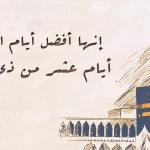 إنها أفضل أيام
أيام عشر من ذي